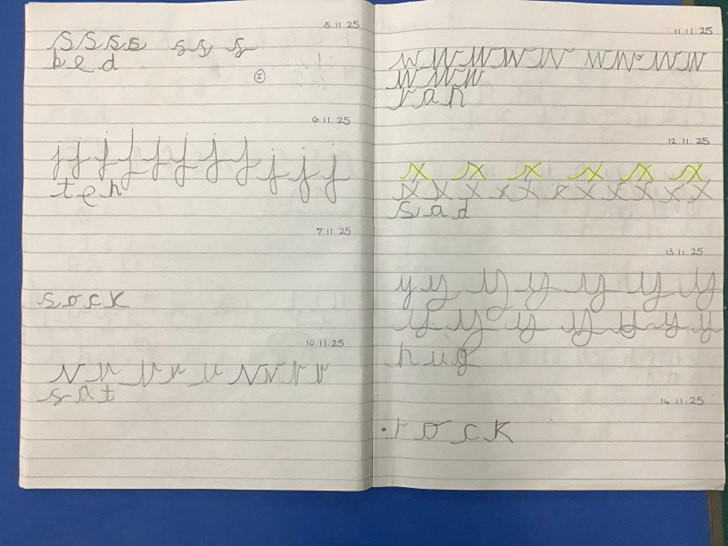 5.11.25
s s s s s s s
bed
I
6.11.25
j j j j j j j j j j j
ten
7.11.25
sock
10.11.25
v v v v v v v v v
sat
11.11.25
w w w w w w w w w
w w w
ran
12.11.25
x x x x x x
x x x x x x x x x x x
sad
13.11.25
y y y y y y y
y y y y y y y
hug
14.11.25
rock